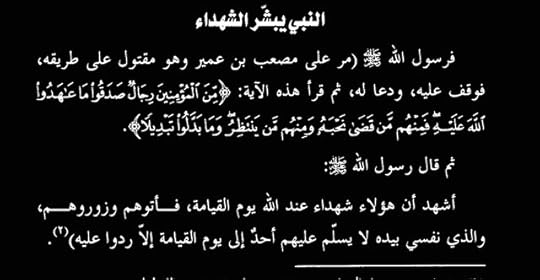 النبي يبشّر الشهداء
فرسول الله ﷺ (مر على مصعب بن عمير وهو مقتول على طريقه،
فوقف عليه، ودعا له، ثم قرأ هذه الآية: ﴿مِّنَ ٱلْمُؤْمِنِينَ رِجَالٌ صَدَقُوا۟ مَا عَٰهَدُوا۟
ٱللَّهَ عَلَيْهِ ۖ فَمِنْهُم مَّن قَضَىٰ نَحْبَهُۥ وَمِنْهُم مَّن يَنتَظِرُ ۖ وَمَا بَدَّلُوا۟ تَبْدِيلًا﴾.
ثم قال رسول الله ﷺ:
أشهد أن هؤلاء شهداء عند الله يوم القيامة، فـأتوهم وزوروهـم،
والذي نفسي بيده لا يسلّم عليهم أحدٌ إلى يوم القيامة إلاّ ردوا عليه)(٢).